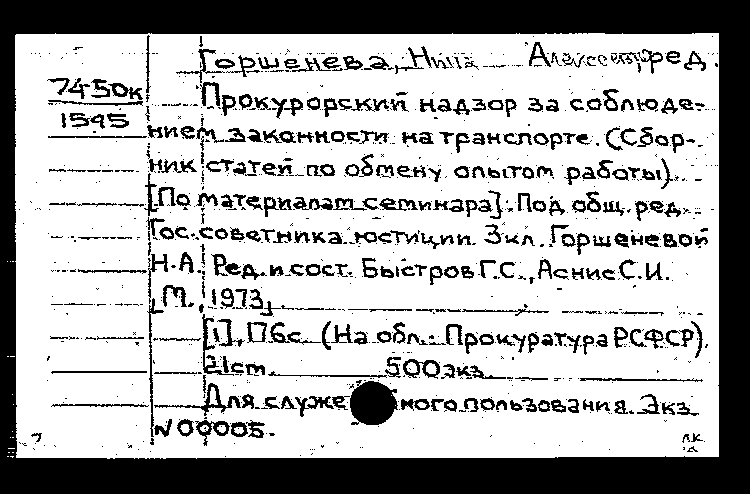 Горшенева, Нина Алексеевна ред.
7450к
1595
Прокурорский надзор за соблюде-
нием законности на транспорте. (Сбор-
ник статей по обмену опытом работы).
[По материалам семинара]. Под общ. ред.
Гос. советника юстиции 3 кл. Горшеневой
Н.А. Ред. и сост. Быстров Г.С., Аснис С.И.
[М., 1973].
[1], 176с. (На обл.: Прокуратура РСФСР).
21см. 500 экз.
Для служе ного пользования. Экз
N 00005.